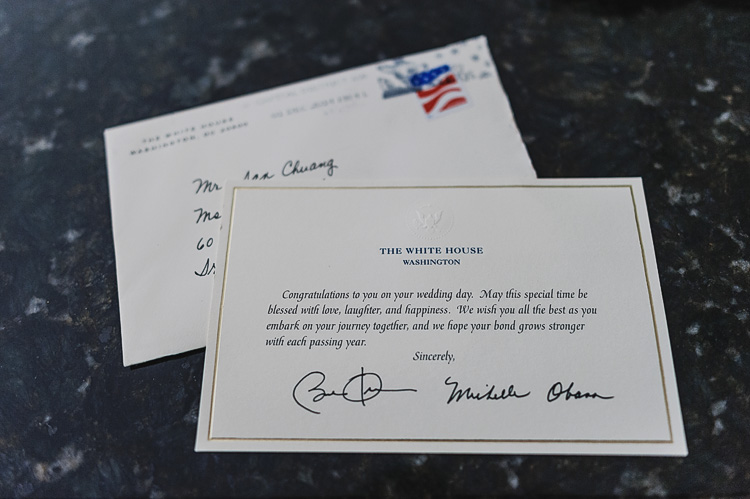 THE WHITE HOUSE
WASHINGTON, DC 20500
Mr. Chuang
Ms
60
THE WHITE HOUSE
WASHINGTON
Congratulations to you on your wedding day. May this special time be
blessed with love, laughter, and happiness. We wish you all the best as you
embark on your journey together, and we hope your bond grows stronger
with each passing year.
Sincerely,
Michelle Obama